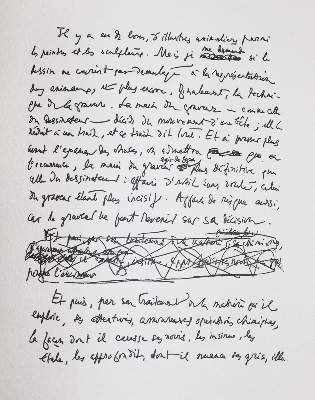 Il y a eu de bons, d'illustres animaliers parmi
les peintres et les sculpteurs. Mais je me demande si le
dessin ne convient pas davantage à la représentation
des animaux, et plus encore, finalement, la techni-
que de la gravure. La main du graveur — comme celle
du dessinateur — décide du mouvement d'un être; elle le
réduit à un trait, et ce trait dit tout. Et à penser plus
avant l'espace des choses, on admettra que
la main du graveur agit de façon plus définitive que
celle du dessinateur: affaire d'outil sans doute, celui
du graveur étant plus incisif. Affaire de risque aussi,
car le graveur ne peut revenir sur sa décision.
Et puis, par son traitement de la matière qu'il
emploie, ses attentives, amoureuses opérations chimiques,
la façon dont il creuse ses noirs, les incise, les
étale, les approfondit, dont il nuance ses gris, elle